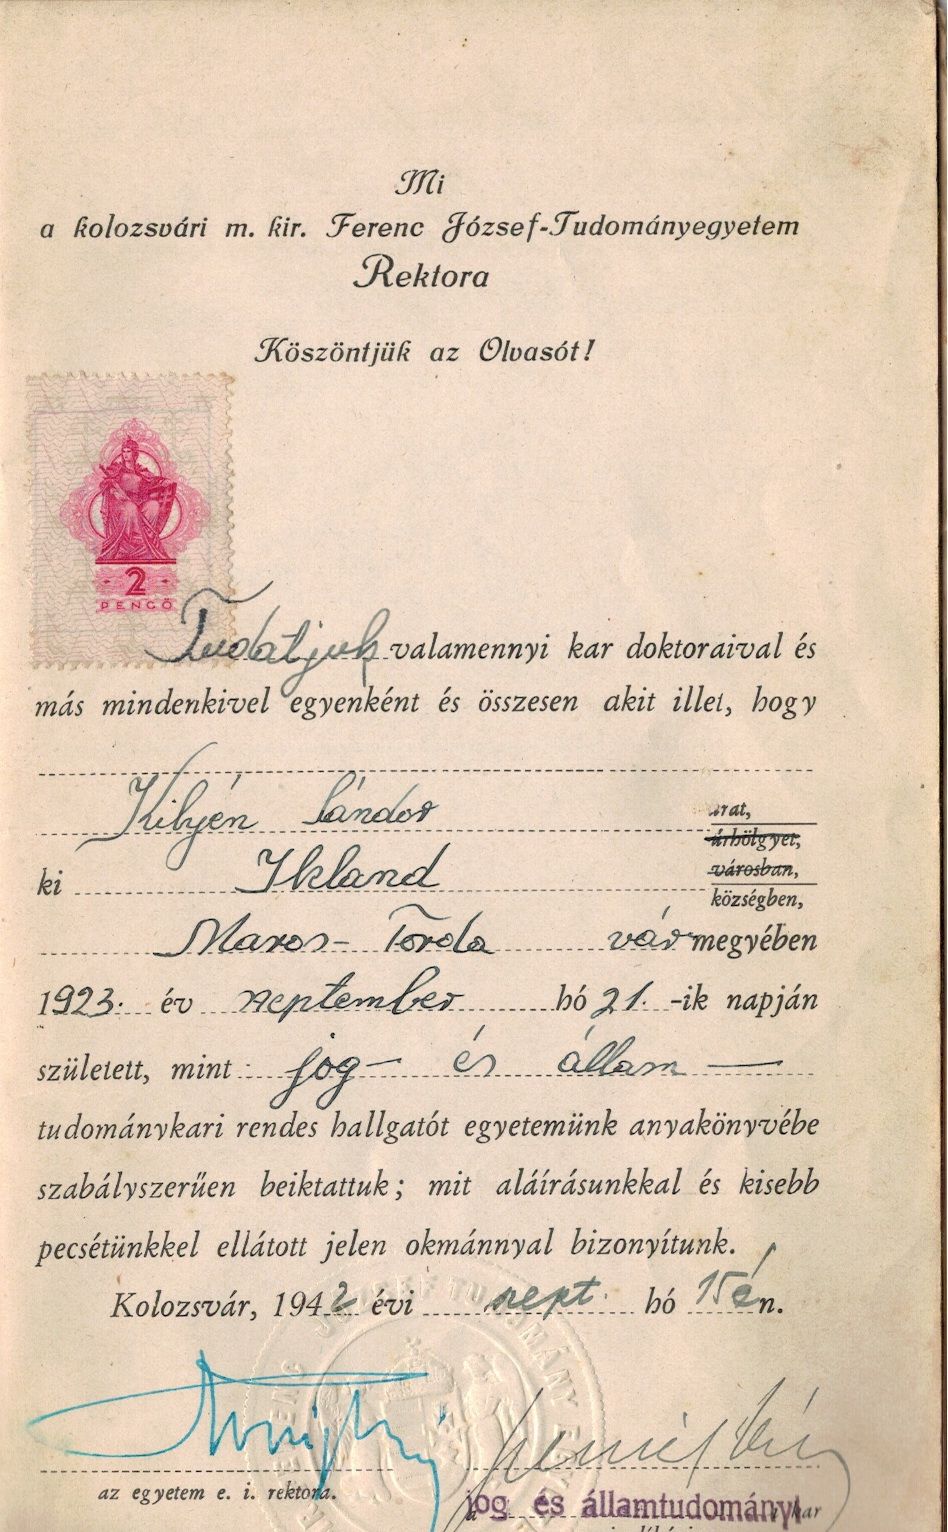 Mi
a kolozsvári m. kir. Ferenc József-Tudományegyetem
Rektora
Köszöntjük az Olvasót!
2
PENGŐ
Tudatjuk valamennyi kar doktoraival és
más mindenkivel egyenként és összesen akit illet, hogy
Kilyén Sándor urat,
úrhölgyet,
ki Ikland városban,
községben,
Maros-Torda vármegyében
1923. év september hó 21. -ik napján
született, mint jog- és állam-
tudománykari rendes hallgatót egyetemünk anyakönyvébe
szabályszerűen beiktattuk; mit aláírásunkkal és kisebb
pecsétünkkel ellátott jelen okmánnyal bizonyítunk.
Kolozsvár, 1942 évi sept. hó 15én.
az egyetem e. i. rektora.
jog és államtudományi
a kar